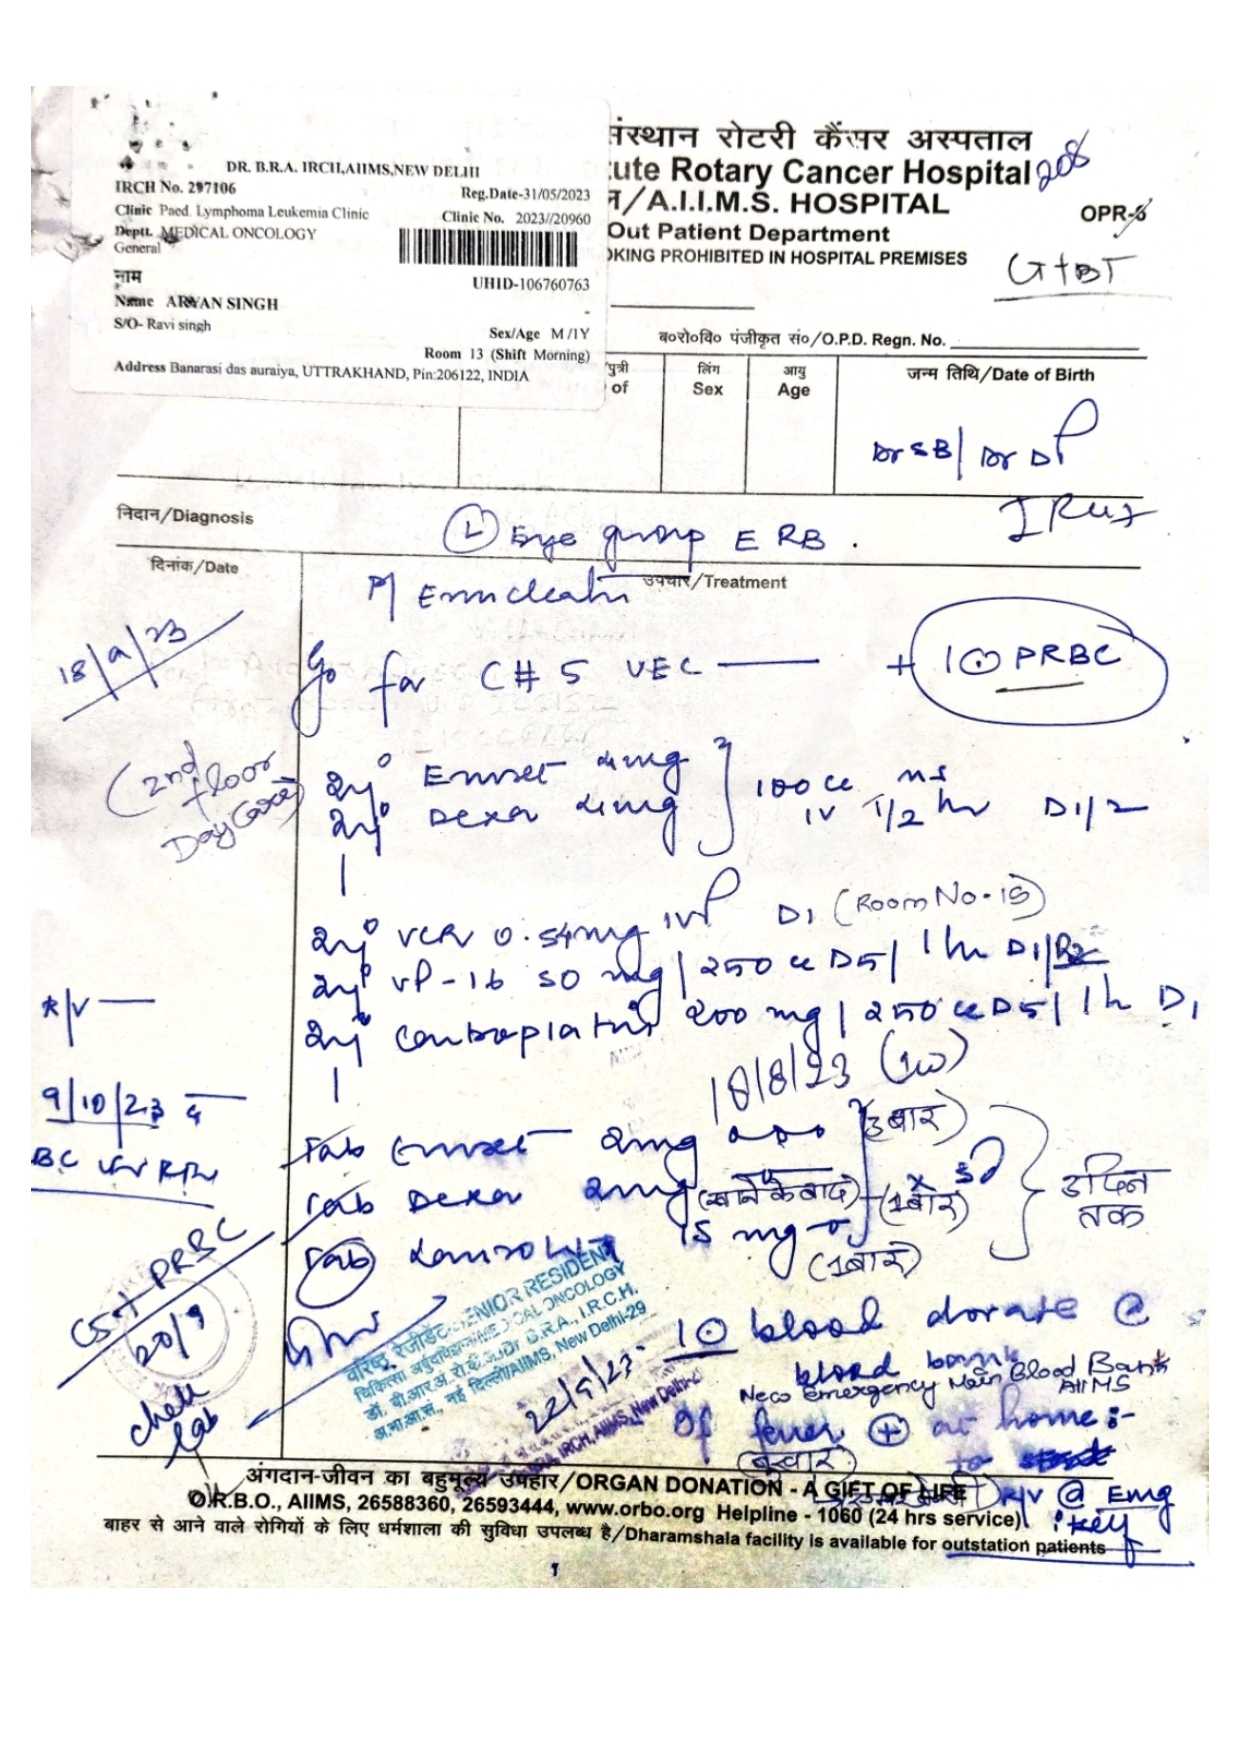 DR. B.R.A. IRCH,AIIMS,NEW DELHI
IRCH No. 297106
Reg.Date-31/05/2023
Clinic Paed. Lymphoma Leukemia Clinic
Clinic No. 2023//20960
Deptt. MEDICAL ONCOLOGY
General
UHID-106760763
नाम
Name ARYAN SINGH
S/O- Ravi singh
Sex/Age M /1Y
Room 13 (Shift Morning)
Address Banarasi das auraiya, UTTRAKHAND, Pin:206122, INDIA
संस्थान रोटरी कैंसर अस्पताल
ute Rotary Cancer Hospital
208
/A.I.I.M.S. HOSPITAL
OPR-6
Out Patient Department
OKING PROHIBITED IN HOSPITAL PREMISES
ब०रो०वि० पंजीकृत सं०/O.P.D. Regn. No.
पुत्री
of
लिंग
Sex
आयु
Age
जन्म तिथि/Date of Birth
Dr SB/ Dr D
निदान/Diagnosis
(L) Eye group E RB.
दिनांक/Date
उपचार/Treatment
18/9/23
Go for C#5 VEC + 10 PRBC
(2nd floor
Day Care)
Emset 4mg
Dexa 4mg
100 cc NS
IV 1/2 hr D1/2
VCR 0.54mg IVP D1 (Room No-15)
VP-16 50 mg/250 cc D5/1hr D1/
carboplatin 200 mg/250 cc D5/1h D1
R/V
18/8/23
9/10/23
Tab Emset 2mg (3 बार)
Tab Dexa 2mg (खाने के बाद) (1बार)
15 mg
(1बार)
3 दिन
तक
PRBC
20/9
वरिष्ठ रेजीडेंट/SENIOR RESIDENT
MEDICAL ONCOLOGY
B.R.A., I.R.C.H.
AIIMS, New Delhi-29
22/9/23
IRCH, AIIMS, New Delhi
10 blood donate @
blood bank
Emergency Main Blood Bank
AIIMS
If fever + at home :-
(बुखार)
R/V @ Emg
अंगदान-जीवन का बहुमूल्य उपहार/ORGAN DONATION - A GIFT OF LIFE
O.R.B.O., AIIMS, 26588360, 26593444, www.orbo.org Helpline - 1060 (24 hrs service)
बाहर से आने वाले रोगियों के लिए धर्मशाला की सुविधा उपलब्ध है/Dharamshala facility is available for outstation patients